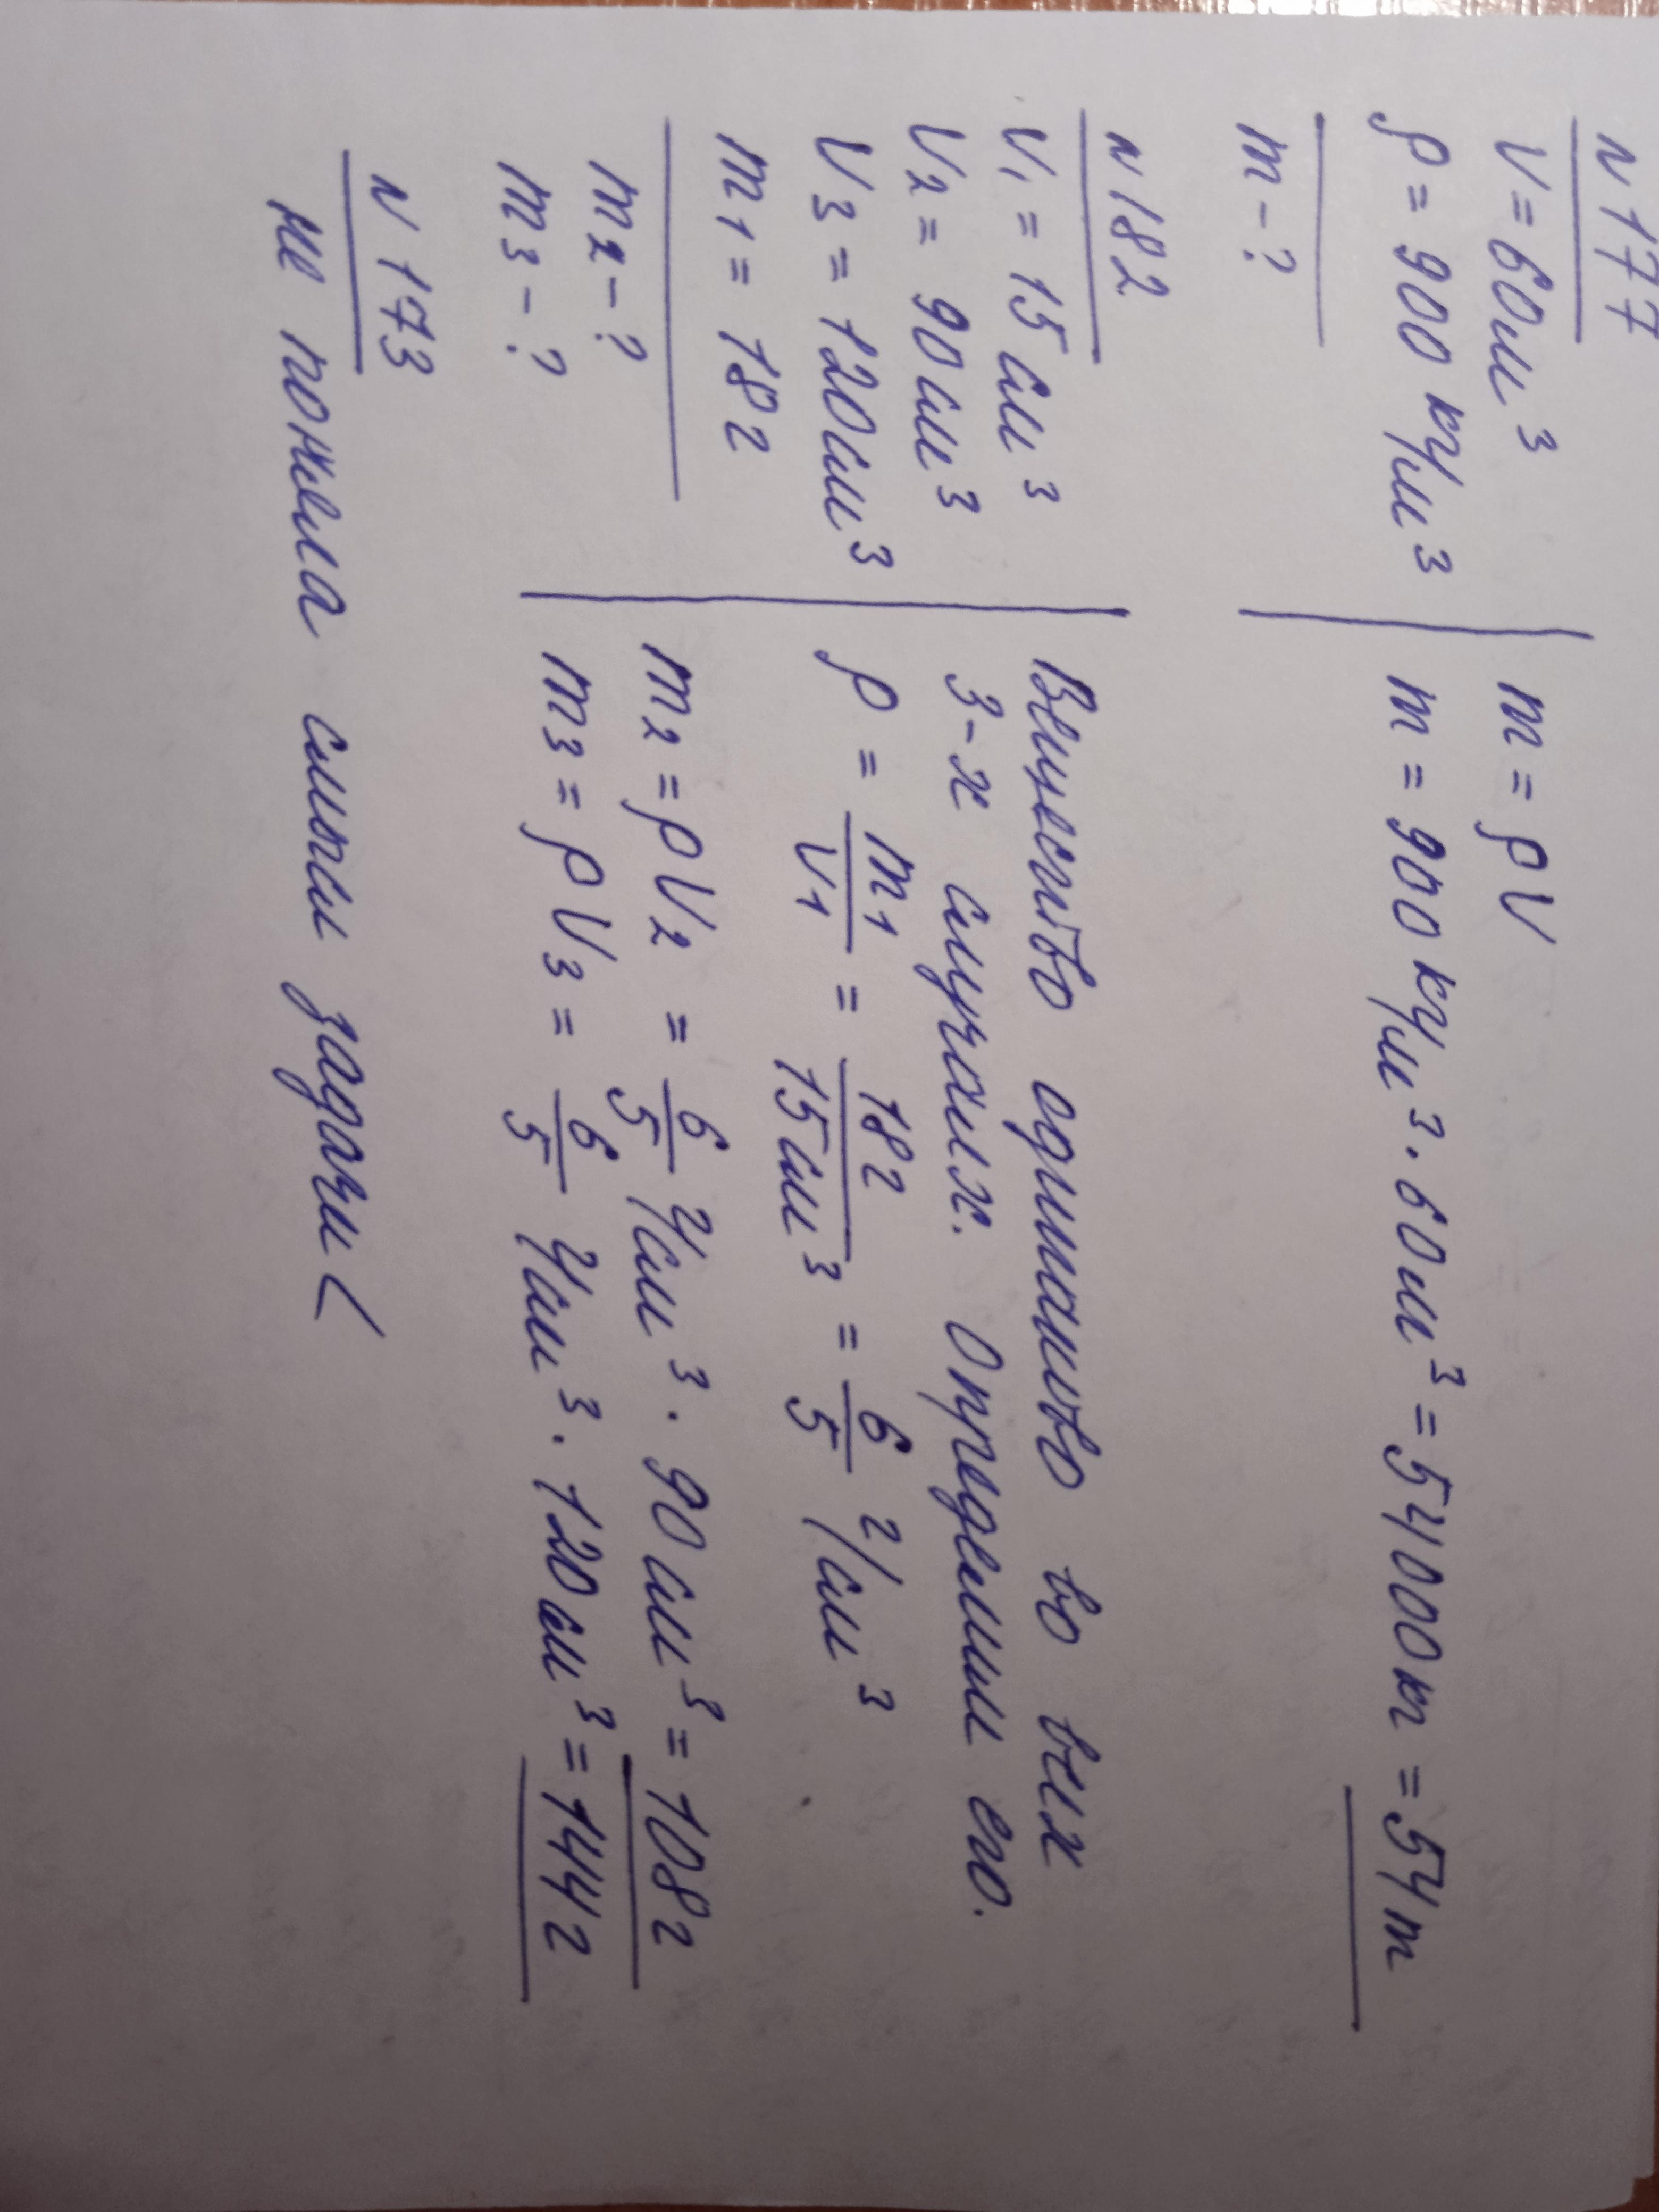 N 177
V = 60м³
ρ = 900 кг/м³
m - ?
m = ρV
m = 900 кг/м³ · 60м³ = 54000кг = 54т
N 182
V₁ = 15 см³
V₂ = 90см³
V₃ = 120см³
m₁ = 18г
m₂ - ?
m₃ - ?
Вещество одинаково во всех
3-х случаях. Определим его.
ρ = m₁/V₁ = 18г/15см³ = 6/5 г/см³
m₂ = ρV₂ = 6/5 г/см³ · 90см³ = 108г
m₃ = ρV₃ = 6/5 г/см³ · 120см³ = 144г
N 173
не поняла смысл задачи (